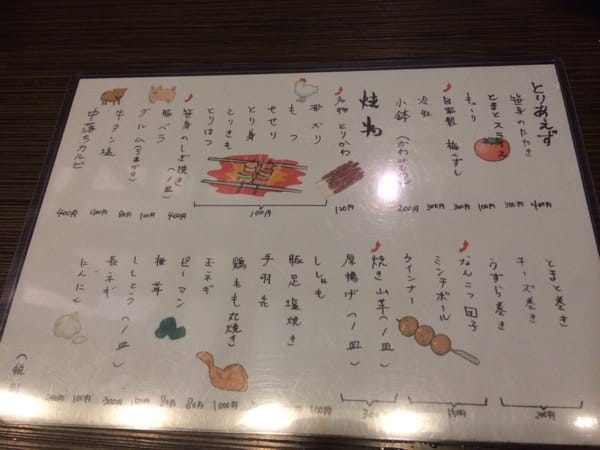 とりあえず
笹身のたたき 400円
とまとスライス 300円
キューリ 100円
自家製 梅くずし 300円
冷奴 300円
小鉢 200円
焼物
名物 とりかわ 120円
砂ズリ
もつ
せせり
とり身
とりきも
とりはつ
100円
笹身のしぎ焼き(一皿) 400円
豚バラ 100円
グルム 80円
牛タン塩
中落ちカルビ 400円
とまと巻き
チーズ巻き
うずら巻き
200円
なんこつ団子
ミンチボール
ウインナー
150円
焼き山芋(一皿)
厚揚げ(一皿)
300円
ししゃも 100円
豚足 塩焼き
手羽先
鶏もも丸焼き 1000円
玉ネギ 80円
ピーマン 80円
椎茸
ししとう(一皿) 300円
長ネギ 100円
にんにく 200円